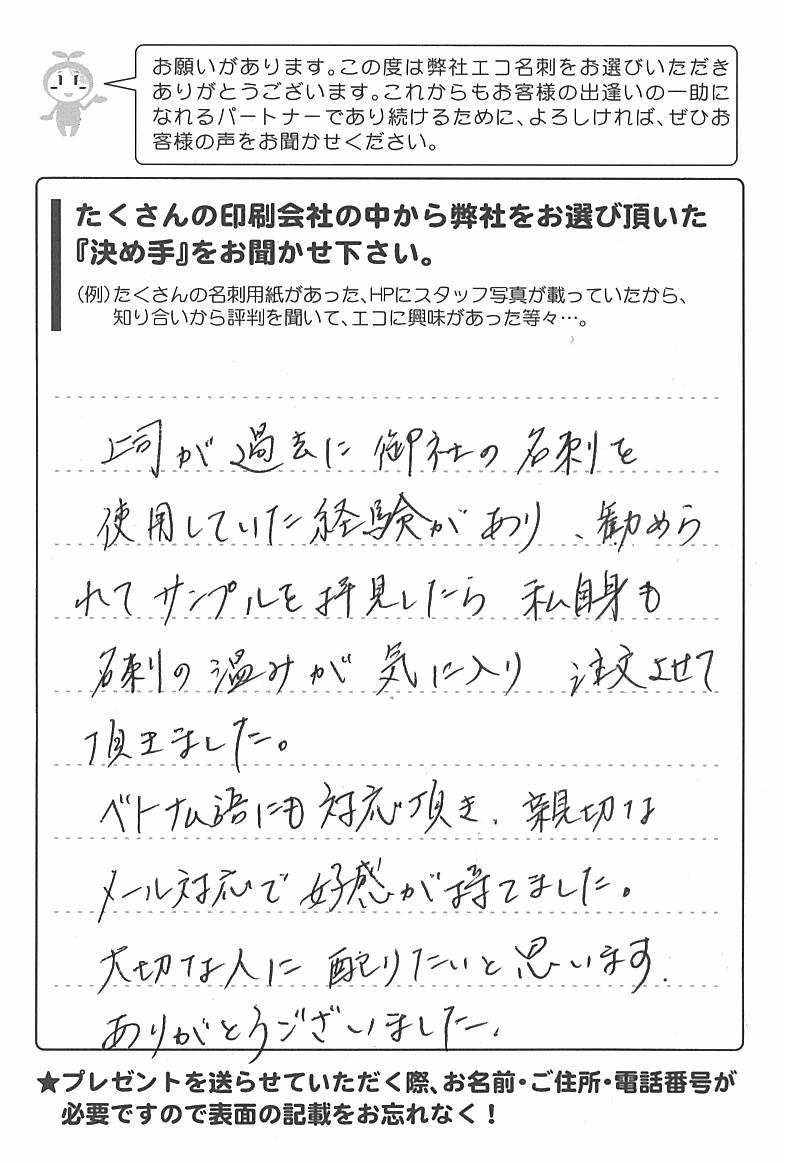 お願いがあります。この度は弊社エコ名刺をお選びいただき
ありがとうございます。これからもお客様の出逢いの一助に
なれるパートナーであり続けるために、よろしければ、ぜひお
客様の声をお聞かせください。
たくさんの印刷会社の中から弊社をお選び頂いた
『決め手』をお聞かせ下さい。
(例)たくさんの名刺用紙があった、HPにスタッフ写真が載っていたから、
知り合いから評判を聞いて、エコに興味があった等々…。
上司が過去に御社の名刺を
使用していた経験があり、勧めら
れてサンプルを拝見したら私自身も
名刺の温みが気に入り注文させて
頂きました。
ベトナム語にも対応頂き、親切な
メール対応で好感が持てました。
大切な人に配りたいと思います。
ありがとうございました。
★プレゼントを送らせていただく際、お名前・ご住所・電話番号が
必要ですので表面の記載をお忘れなく！